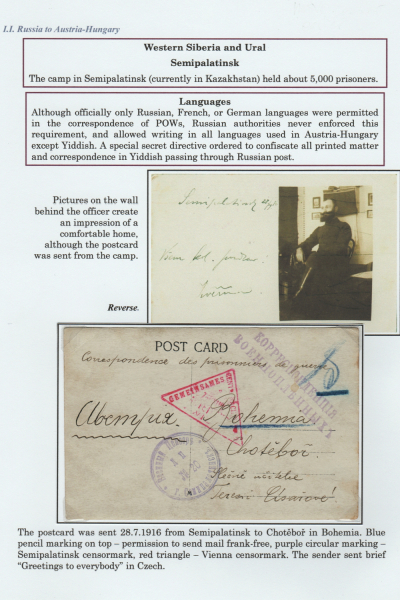 I.I. Russia to Austria-Hungary
Western Siberia and Ural
Semipalatinsk
The camp in Semipalatinsk (currently in Kazakhstan) held about 5,000 prisoners.
Languages
Although officially only Russian, French, or German languages were permitted
in the correspondence of POWs, Russian authorities never enforced this
requirement, and allowed writing in all languages used in Austria-Hungary
except Yiddish. A special secret directive ordered to confiscate all printed matter
and correspondence in Yiddish passing through Russian post.
Pictures on the wall
behind the officer create
an impression of a
comfortable home,
although the postcard
was sent from the camp.
Semipalatinsk
Reverse.
POST CARD
Correspondence des prisonniers de guerre
GEMEINSAMES
Австрия.
Bohemia
Chotěboř
Slečně učitelce
The postcard was sent 28.7.1916 from Semipalatinsk to Chotěboř in Bohemia. Blue
pencil marking on top – permission to send mail frank-free, purple circular marking –
Semipalatinsk censormark, red triangle – Vienna censormark. The sender sent brief
“Greetings to everybody” in Czech.